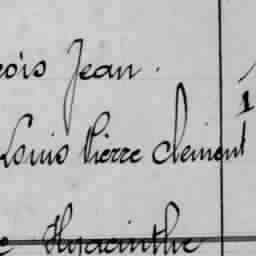 rois Jean.
1
Louis Pierre Clement
e Hyacinthe